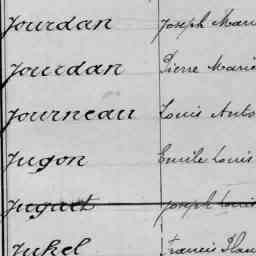 Jourdan Joseph Mari
Jourdan Pierre Marie
Journeau Louis Auto
Jugon Emile Louis
Juguet Joseph Louis
Jukel Francis